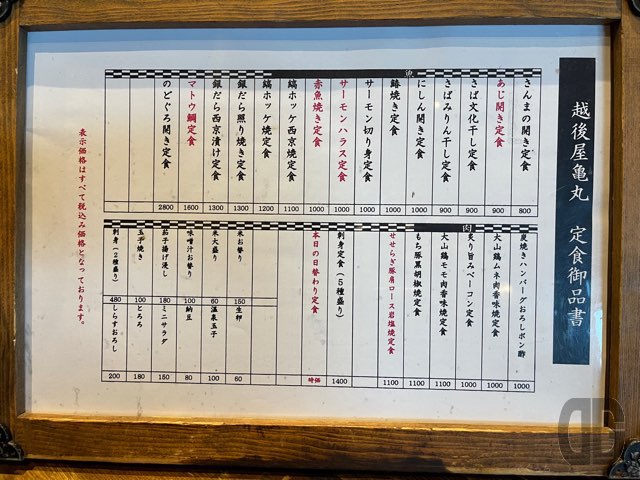 越後屋亀丸 定食御品書
魚
さんまの開き定食 800
あじ開き定食 900
さば文化干し定食 900
さばみりん干し定食 900
にしん開き定食 1000
鰆焼き定食 1000
サーモン切り身定食 1000
サーモンハラス定食 1000
赤魚焼き定食 1000
縞ホッケ西京焼定食 1100
縞ホッケ焼定食 1200
銀だら照り焼き定食 1300
銀だら西京漬け定食 1300
マトウ鯛定食 1600
のどぐろ開き定食 2800
肉
炭焼きハンバーグおろしポン酢 1000
大山鶏ムネ肉香味焼定食 1000
炙り旨みベーコン定食 1000
大山鶏モモ肉香味焼定食 1100
もち豚黒胡椒焼定食 1100
せせらぎ豚肩ロース岩塩焼定食 1100
刺身定食(5種盛り) 1400
本日の日替わり定食 時価
米お替り 150
米大盛り 60
味噌汁お替り 100
茄子揚げ浸し 180
玉子焼き 100
刺身(2種盛り) 480
生卵 60
温泉玉子 100
納豆 80
ミニサラダ 150
とろろ 180
しらすおろし 200
表示価格はすべて税込み価格となっております。